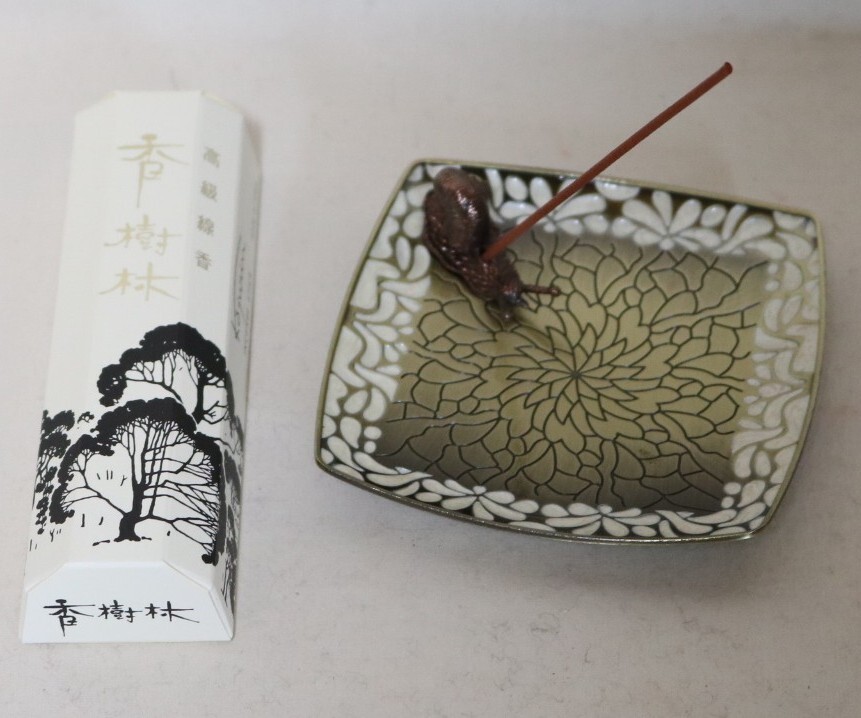 香樹林
高級線香
香樹林